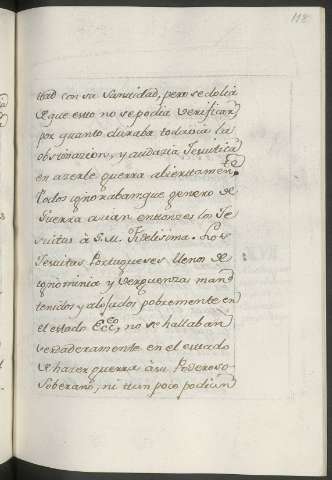 118
ttad con su Santidad, pero se dolia
de que esto no se podia verificar
por quanto duraba todavia la
obstinazion, y audazia Jesuitica
en azerle guerra abiertamen.te
Todos ignoraban que genero de
Guerra avian entonzes los Je
suitas â S. M. Fidelisima. Los
Jesuitas Portugueses llenos de
ignominia y verguenza man
tenidos y alojados pobremente en
el estado Ecc.co, no se hallaban
verdaderamente en el estado
de hazer guerra â su Poderoso
Soberano, ni tan poco podian